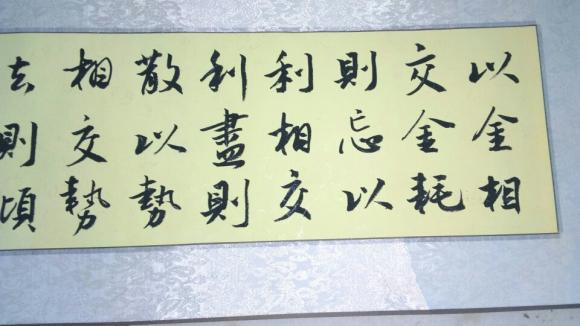 以金相
交金耗
則忘以
利相交
利盡則
散以勢
相交勢
去則頃